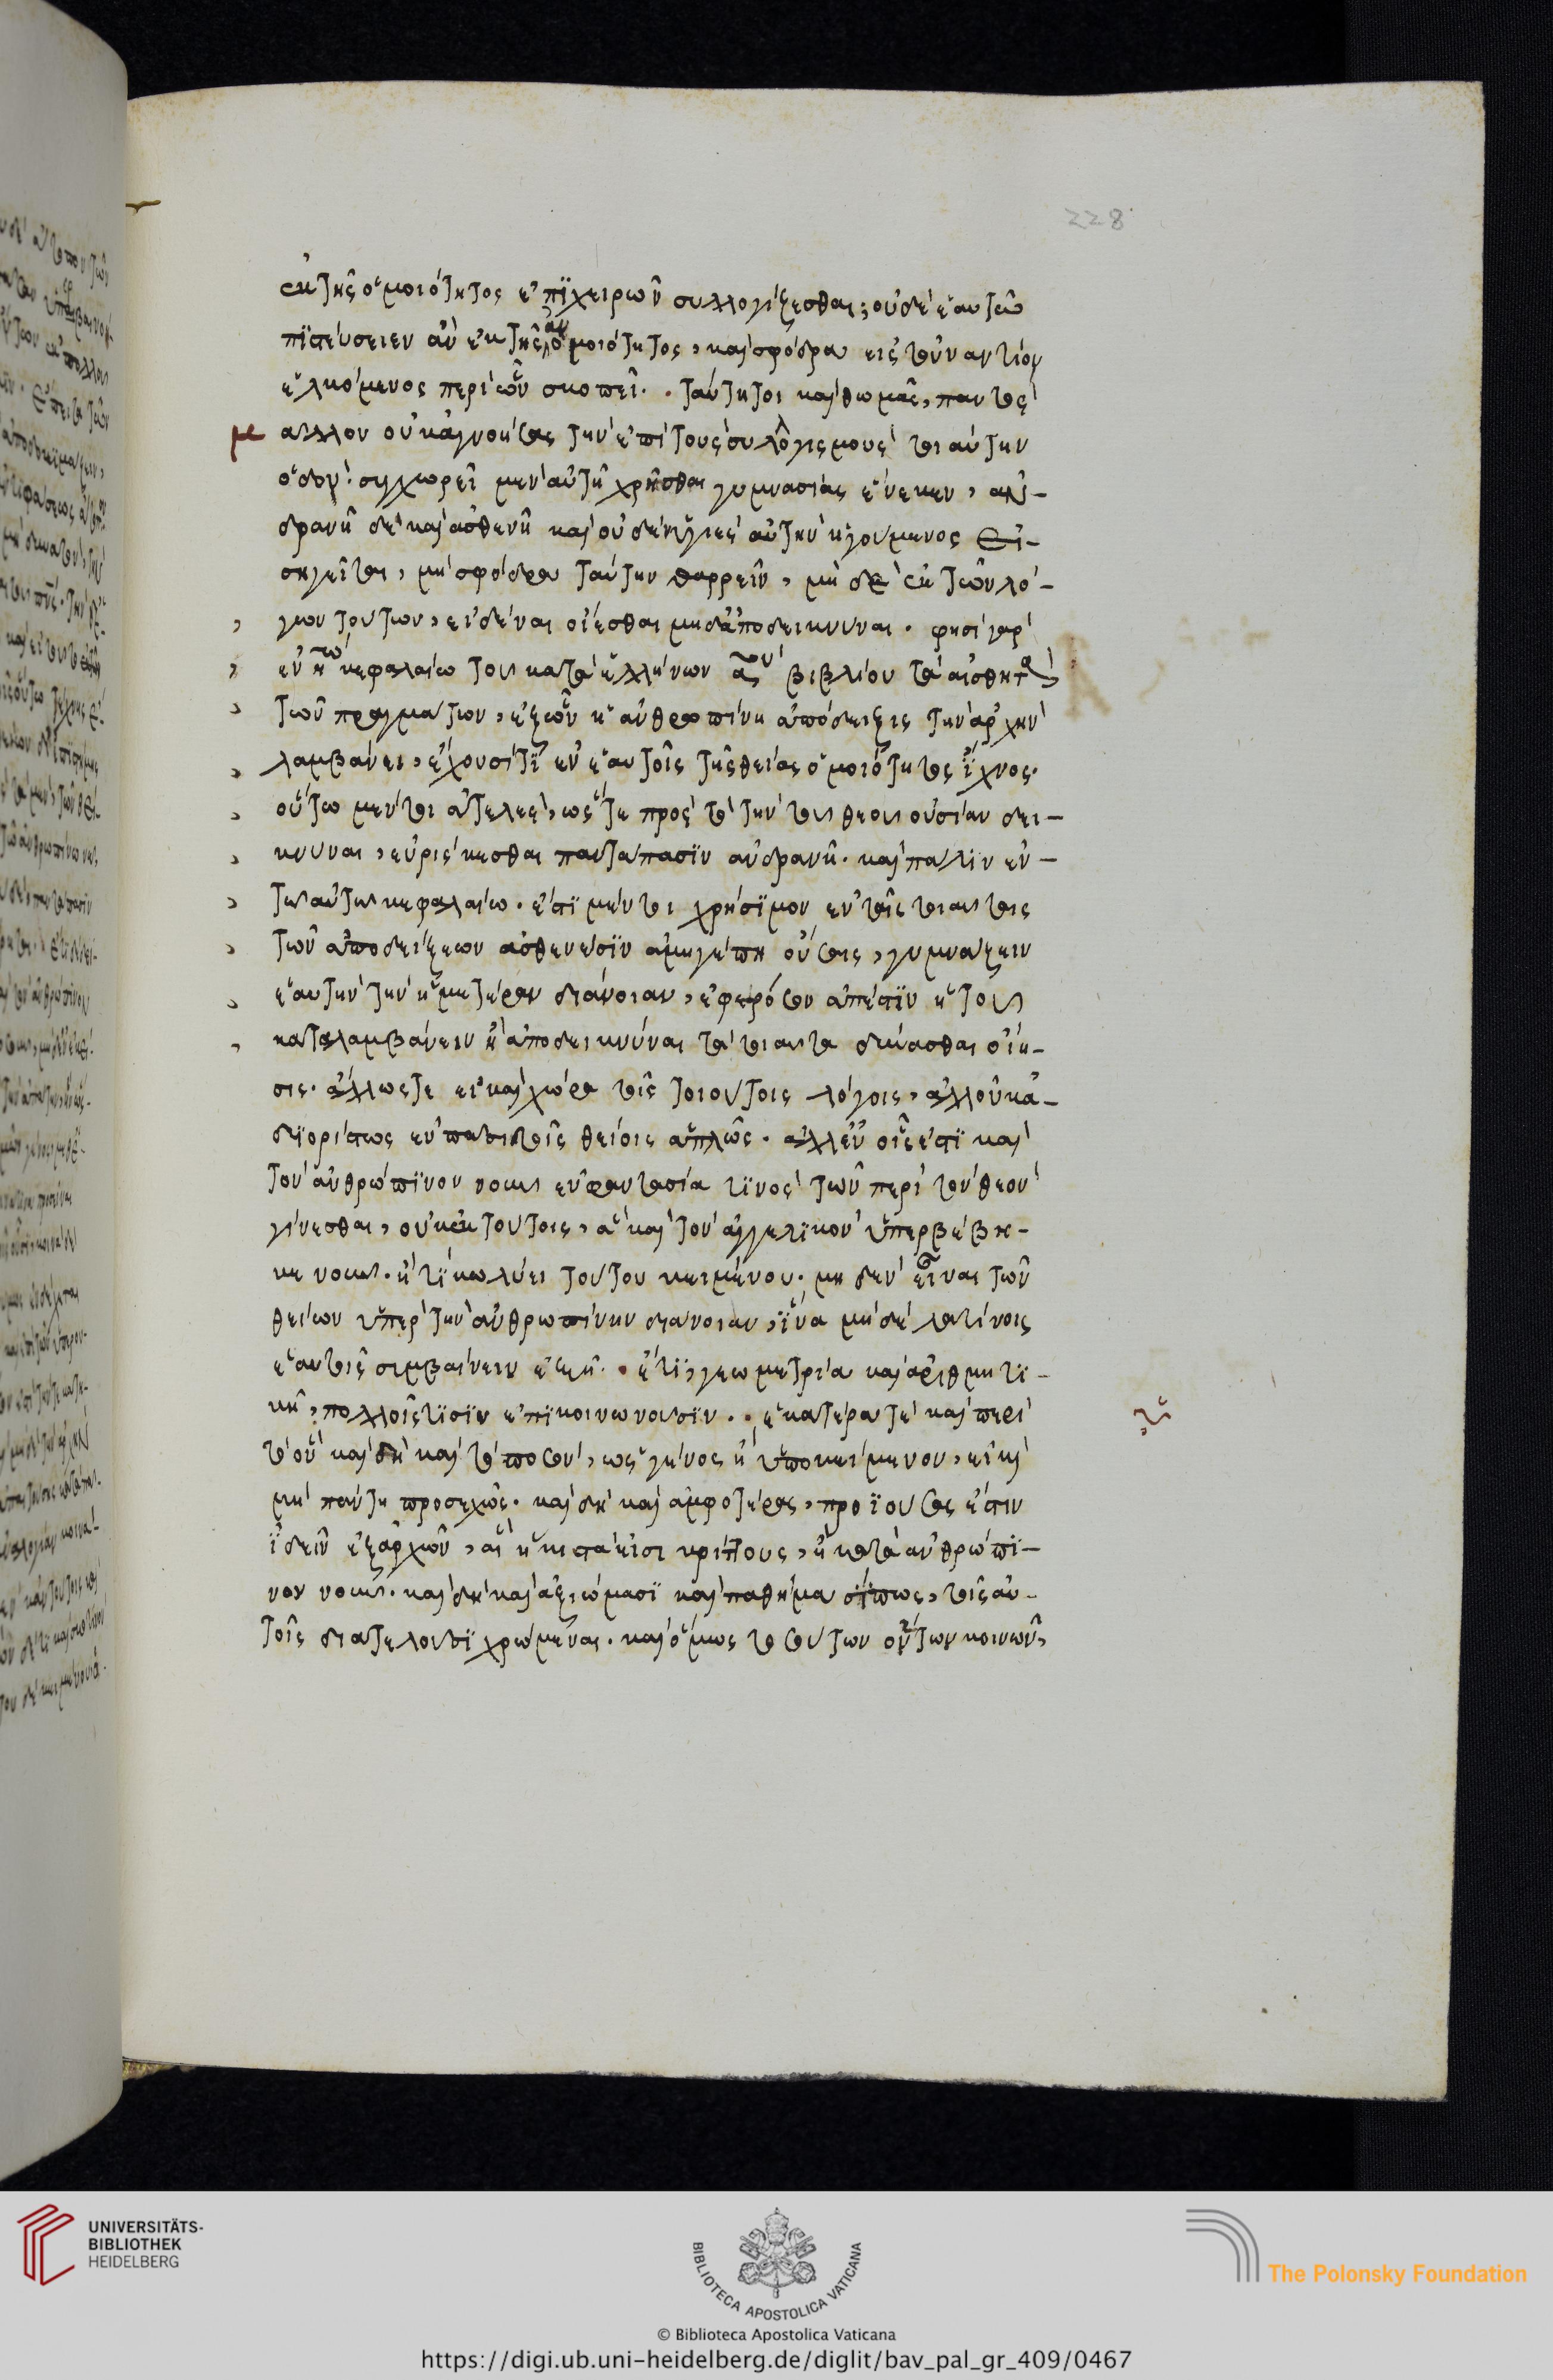 228
ἐκ τῆς ὁμοιότητος ἐπϊχειρῶν συλλογίζεσθαι; οὐδὲ ἑαυτῶ
πϊστεύσειεν ἂν ἐκ τῆς ἀνομοιότητος, καὶ σφόδρα εἰς τοὐναντίον
ἑλκόμενος περὶ ὧν σκοπεῖ. ταύτη τοι καὶ θωμᾶς, παντὸς
μᾶλλον οὐκ ἀγνοήσας τὴν ἐπὶ τοὺς συλλογισμοὺς τοιαύτην
ὁδὸν· συγχωρεῖ μὲν αὐτῆ χρῆσθαι γυμνασίας ἕνεκεν, ἀ-
δρανῆ δὲ καὶ ἀσθενῆ καὶ οὐδὲν ὑγιὲς αὐτὴν ἡγούμενος εἰ-
σηγεῖται, μὴ σφόδρα ταύτην θαρρεῖν, μὴ δὲ ἐκ τῶν λό-
γων τούτων, εἰδέναι οἴεσθαι μηδ' ἀποδεικνύναι. φησὶ γὰρ
ἐν ηω κεφαλαίω τοῦ κατὰ ἑλλήνων αου βιβλίου τὰ αἰσθητὰ
τῶν πραγμάτων, ἐξ ὧν ἡ ἀνθρωπίνη ἀπόδειξις τὴν ἀρχὴν
λαμβάνει, ἔχουσί τϊ ἐν ἑαυτοῖς τῆς θείας ὁμοιότητος ἴχνος.
οὕτω μέντοι ἀτελὲς, ὥς τε πρὸς τὸ τὴν τοῦ θεοῦ οὐσίαν δει-
κνύναι, εὑρίσκεσθαι παντάπασϊν ἀδρανῆ. καὶ πάλϊν ἐν
τῶ αὐτῶ κεφαλαίω. ἔστϊ μέντοι χρήσϊμον ἐν τοῖς τοιούτοις
τῶν ἀποδείξεων ἀσθενέσϊν ἀμηγέπη οὔσαις, γυμνάζειν
ἑαυτὴν τὴν ἡμετέραν διάνοιαν, ἐφ' ὅσον ἄπεστϊν ἡ τοῦ
καταλαμβάνειν ἢ ἀποδεικνύναι τὰ τοιαῦτα δύνασθαι οἴη-
σις. ἄλλως τε εἰ καὶ χώρα τοῖς τοιούτοις λόγοις, ἀλλ' οὐκ ἀ-
δϊορίστως ἐν πᾶσι τοῖς θείοις ἁπλῶς. ἀλλ' ἐν οἷς ἔστϊ καὶ
τὸν ἀνθρώπϊνον νοῦν ἐν φαντασία τϊνὸς τῶν περὶ τὸν θεὸν
γίνεσθαι, οὐκ ἐκ τούτοις, ἃ καὶ τὸν ἀγγελϊκὸν ὑπερβέβη-
κε νοῦν. ἢ τί κωλύει τούτου κειμένου. μηδὲν εἶναι τῶν
θείων ὑπὲρ τὴν ἀνθρωπίνην διάνοιαν, ἵνα μὴ δὲ λατίνοις
ἑαυτοῖς συμβαίνειν ἐξῆ. ἔτϊ, γεωμετρία καὶ ἀρϊθμητϊ-
κὴ, πολλοῖς τϊσϊν ἐπϊκοινωνοῦσϊν. ἑκατέρα τὲ καὶ περὶ
τὸ ὂν καὶ δὴ καὶ τὸ ποσὸν, ὡς γένος ἢ ὑποκείμενον, εἰ καὶ
μὴ πάντη προσεχῶς. καὶ δὴ καὶ ἀμφοτέρας, προϊούσας ἔστιν
ἰδεῖν ἐξ ἀρχῶν, αἳ ἥκιστά εἰσι κρίττους, ἢ κατὰ ἀνθρώπϊ-
νον νοῦν. καὶ δὴ καὶ ἀξιώμασϊ καὶ παθήμασϊ πως, τοῖς αὐ-
τοῖς διατελοῦσϊ χρώμεναι. καὶ ὅμως τοσούτων ὄντων κοινῶν,
UNIVERSITÄTS-
BIBLIOTHEK
HEIDELBERG
BIBLIOTECA APOSTOLICA VATICANA
The Polonsky Foundation
© Biblioteca Apostolica Vaticana
https://digi.ub.uni-heidelberg.de/diglit/bav_pal_gr_409/0467